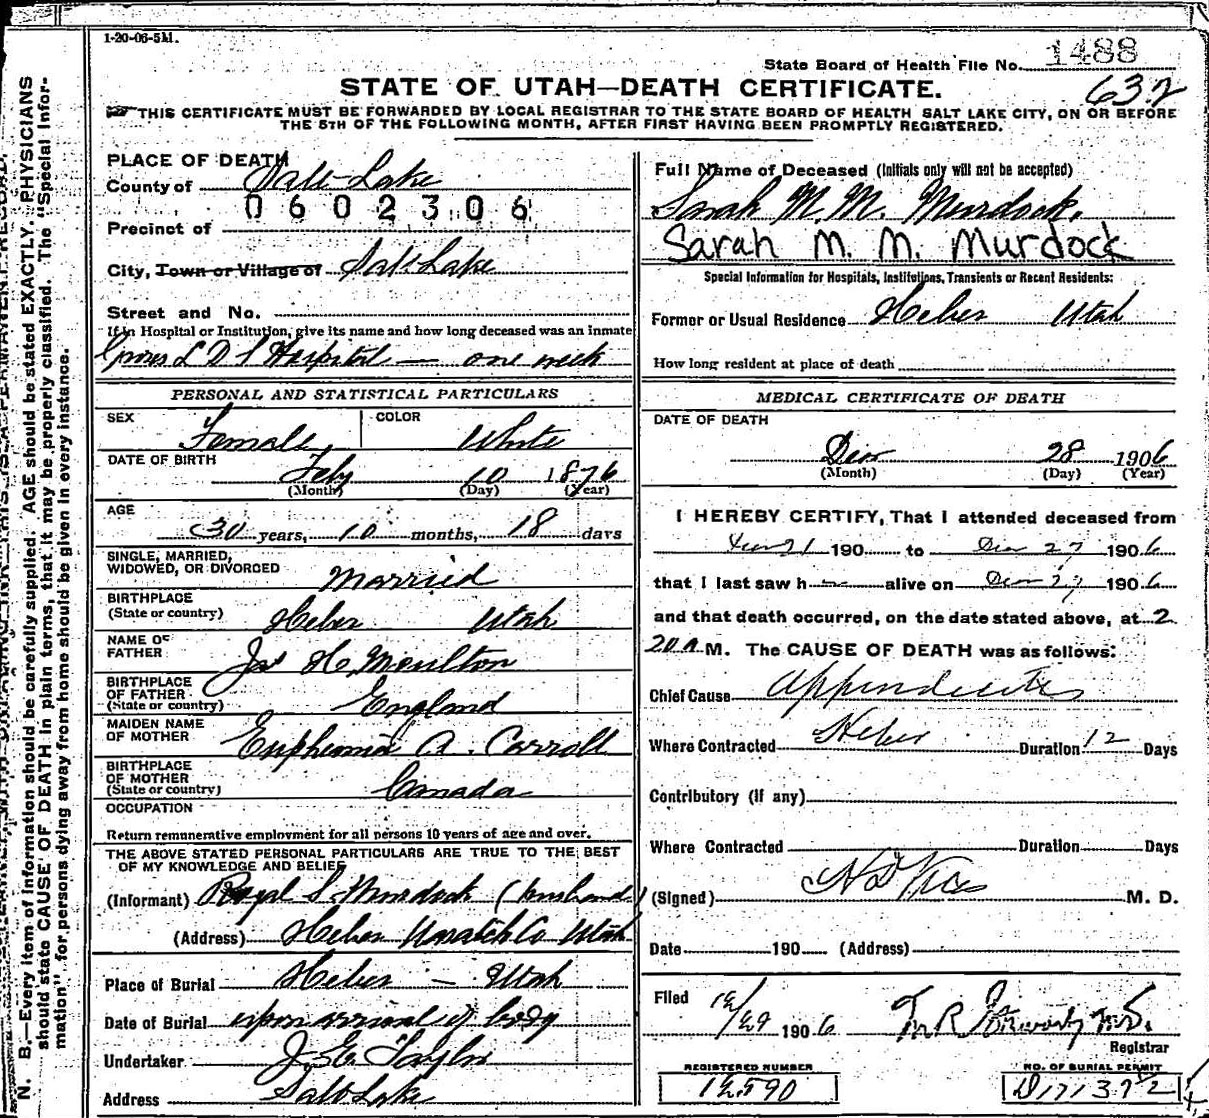 1-20-06-5M.
State Board of Health File No. 1488
STATE OF UTAH—DEATH CERTIFICATE.
632
THIS CERTIFICATE MUST BE FORWARDED BY LOCAL REGISTRAR TO THE STATE BOARD OF HEALTH SALT LAKE CITY, ON OR BEFORE
THE 5TH OF THE FOLLOWING MONTH, AFTER FIRST HAVING BEEN PROMPTLY REGISTERED.
PLACE OF DEATH
County of Salt Lake
0602306
Precinct of
City, Town or Village of Salt Lake
Street and No.
If in Hospital or Institution, give its name and how long deceased was an inmate
L D S Hospital — one week
PERSONAL AND STATISTICAL PARTICULARS
SEX Female COLOR White
DATE OF BIRTH Feby 10 1876
(Month) (Day) (Year)
AGE 30 years, 10 months, 18 days
SINGLE, MARRIED,
WIDOWED, OR DIVORCED Married
BIRTHPLACE
(State or country) Heber Utah
NAME OF
FATHER Jas H Moulton
BIRTHPLACE
OF FATHER
(State or country) England
MAIDEN NAME
OF MOTHER Euphemia A. Carroll
BIRTHPLACE
OF MOTHER
(State or country) Canada
OCCUPATION
Return remunerative employment for all persons 10 years of age and over.
THE ABOVE STATED PERSONAL PARTICULARS ARE TRUE TO THE BEST
OF MY KNOWLEDGE AND BELIEF
(Informant) Royal S. Murdock (husband)
(Address) Heber Wasatch Co Utah
Place of Burial Heber — Utah
Date of Burial upon arrival of body
Undertaker J. E. Taylor
Address Salt Lake
Full Name of Deceased (Initials only will not be accepted)
Sarah M. M. Murdock.
Sarah M. M. Murdock
Special Information for Hospitals, Institutions, Transients or Recent Residents:
Former or Usual Residence Heber Utah
How long resident at place of death
MEDICAL CERTIFICATE OF DEATH
DATE OF DEATH
Dec 28 1906
(Month) (Day) (Year)
I HEREBY CERTIFY, That I attended deceased from
190 to Dec 27 1906
that I last saw h alive on Dec 27 1906
and that death occurred, on the date stated above, at 2
20 A M. The CAUSE OF DEATH was as follows:
Chief Cause Appendicitis
Where Contracted Heber Duration 12 Days
Contributory (if any)
Where Contracted Duration Days
(Signed) M. D.
Date 190 (Address)
Filed 12/29 1906
Registrar
REGISTERED NUMBER
12590
NO. OF BURIAL PERMIT
N. B.—Every item of information should be carefully supplied. AGE should be stated EXACTLY. PHYSICIANS
should state CAUSE OF DEATH in plain terms, that it may be properly classified. The "Special Infor-
mation" for persons dying away from home should be given in every instance.